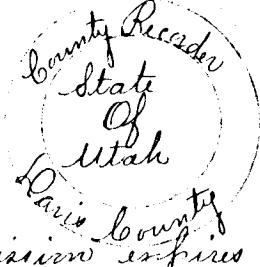 County Recorder
State
Of
Utah
Davis County
ission expires